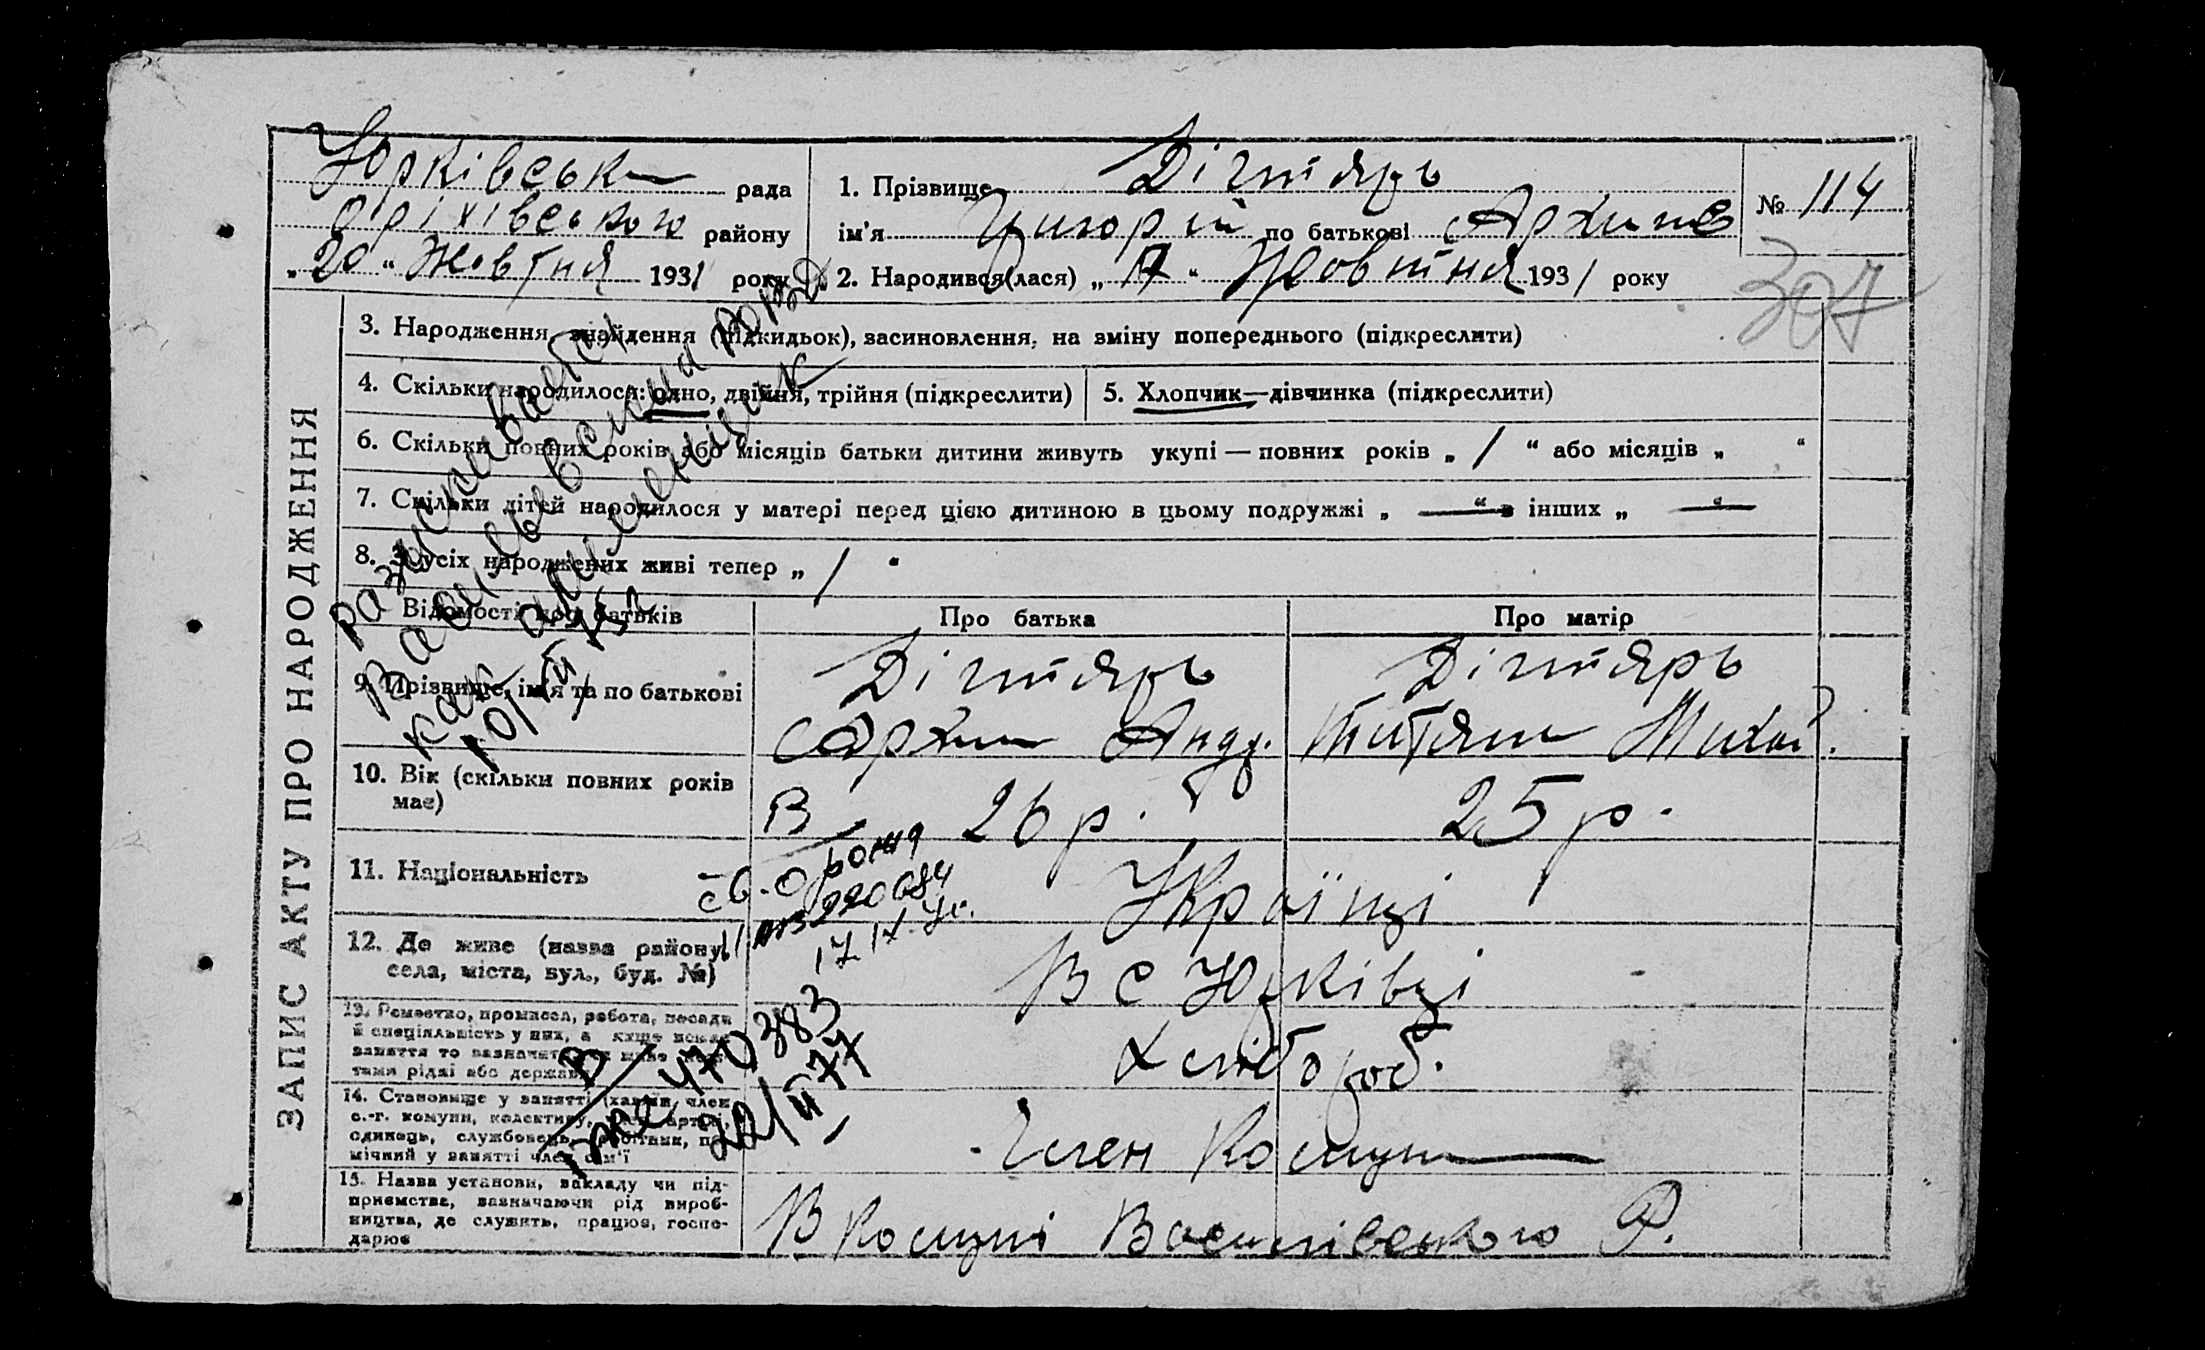 Юрківська рада
Оріхівського району
„ 20 “ Жовтня 1931 року
1. Прізвище Дігтярь
ім'я Григорій по батькові Архипов
2. Народився(лася) „ 17 “ Жовтня 1931 року
№ 114
307
ЗАПИС АКТУ ПРО НАРОДЖЕННЯ
3. Народження, знайдення (підкидьок), засиновлення, на зміну попереднього (підкреслити)
4. Скільки народилося: одно, двійня, трійня (підкреслити)
5. Хлопчик—дівчинка (підкреслити)
6. Скільки повних років або місяців батьки дитини живуть укупі — повних років „ 1 “ або місяців „ “
7. Скільки дітей народилося у матері перед цією дитиною в цьому подружжі „ — “ в інших „ — “
8. З усіх народжених живі тепер „ 1 “
Відомості про батьків
Про батька
Про матір
9. Прізвище, ім'я та по батькові
Дігтярь
Архип Андр.
Дігтярь
Титяна Михай.
10. Вік (скільки повних років має)
26 р.
25 р.
11. Національність
Українці
12. Де живе (назва району, села, міста, вул., буд. №)
В с Юрківці
13. Ремество, промисел, робота, посада й спеціяльність у них, а якщо немає заняття то зазначити
хлібороб.
14. Становище у занятті (хазяїн, член с.-г. комуни, колективу, артілі, одинець, службовець, робітник, помічний у занятті член сім'ї
Член Комуни
15. Назва установи, закладу чи підприємства, зазначаючи рід виробництва, де служить, працює, господарює
В Комуні Василівського Р.
разыскивается
Васильевским РОВД
как алиментщик
В
св-о рожд
220684
17 IX
В
470383
22/II 77